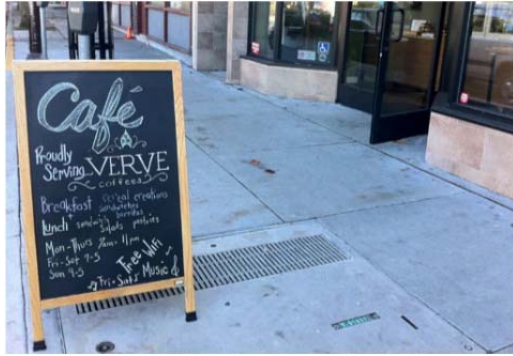 Café
Proudly
Serving
VERVE
coffees
Breakfast cereal creations
sandwiches
burritos
Lunch sandwiches
salads pastries
Mon-Thurs 7am-11pm
Fri-Sat 9-5
Sun 9-5
Free Wifi
Fri-Sats Music